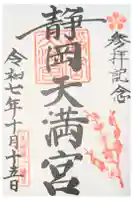 参拝記念
静岡天満宮
令和七年十月十五日